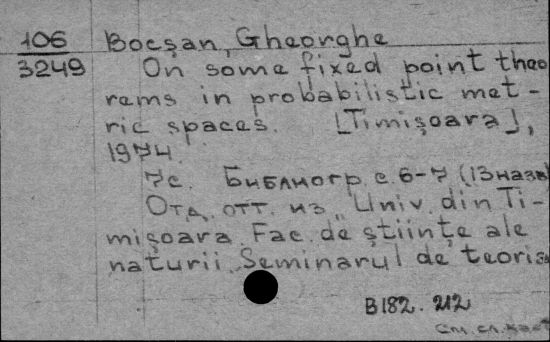 106 Bocşan, Gheorghe
3249 On some fixed point theo
rems in probabilistic met-
ric spaces. [Timişoara],
1974.
7с. Библиогр. с. 6-7 (13назв
Отд. отт. из "Univ. din Ti-
mişoara. Fac. de ştiinţe ale
naturii. Seminarul de teoria
В182.212
См. сл. карт